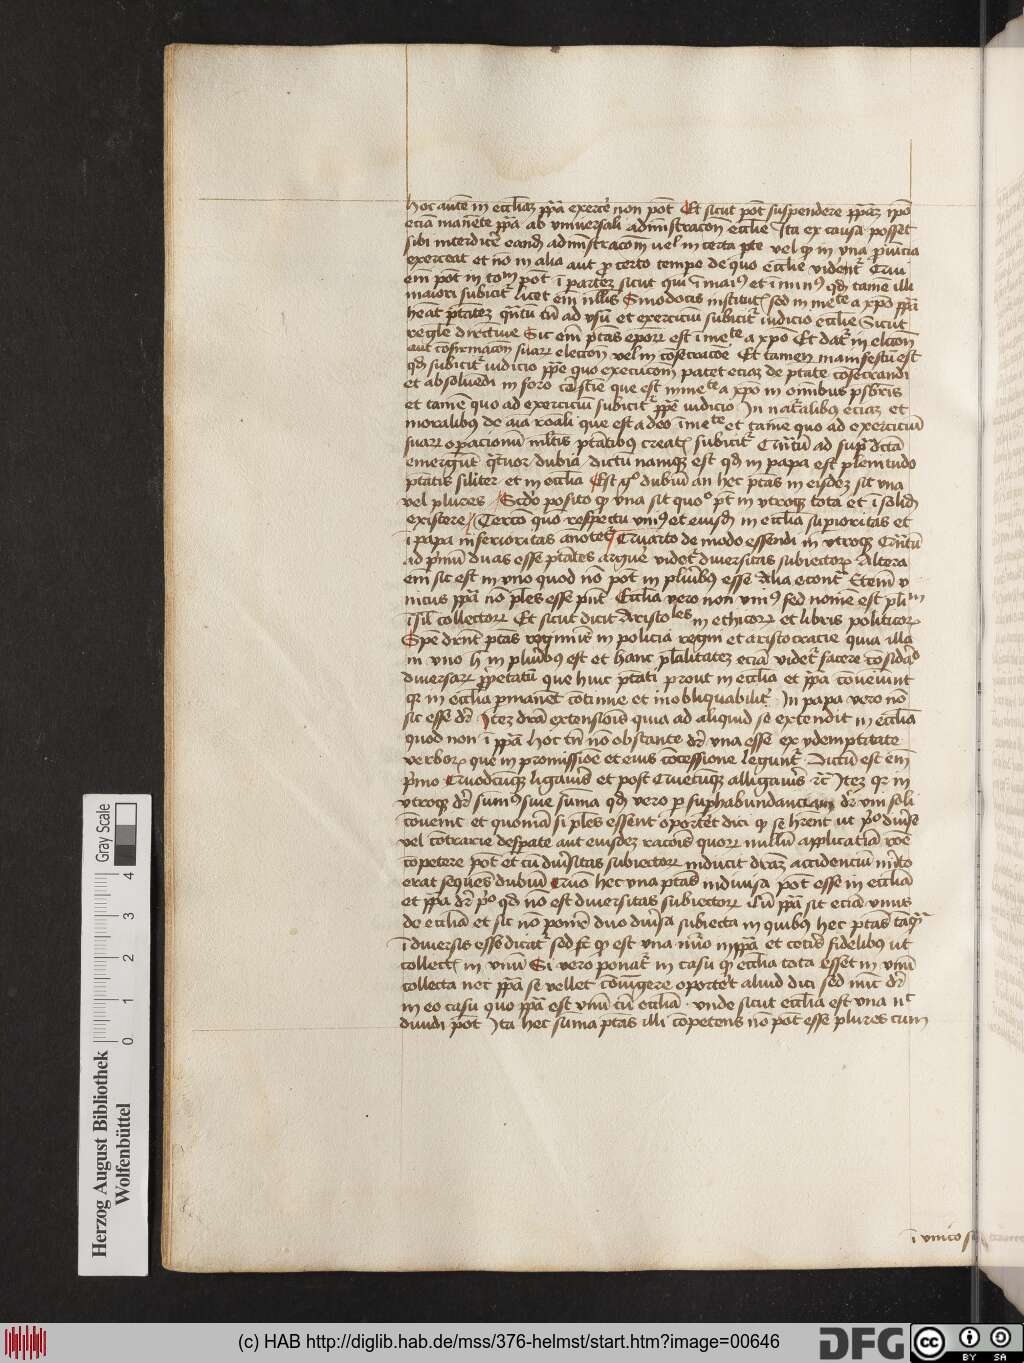 hoc autē in eccliaʒ ppā exercē non pōt Et sicut pōt suspendere ppaʒ ipō
eciā manēte ppā ab vniuersali administracōn ecclie Ita ex causa posset
sibi interdicē eandē administracōm uel in certa pte vel qͥ in vna puīcia
exerceat et nō in alia aut p certo tempe de quo ecclie videntͬ
em pōt in totū pōt
maiori subicitͬ licet em nllis Sinodocis institutͬ sed in mete a xpō ppā
heāt ptāteʒ qntū tn ad vsū et exerciciū subicitͬ iudicio ecclie Sicut
regle directiue Sic em ptās epoꝝ est īmete a xpō Et datͬ in eleccōn
aut cōfirmacōn suaꝝ eleccōn vel in cōsecracōe Et tamen manifestū est
qd subicitͬ iudicio ppe quo execucōem patet eciaʒ de ptāte cōsecrandi
et absoluēdi in foro cōsciē que est īmete a xpō in omnibus psbrīs
et tamē quo ad exerciciū subicitͬ ppe iudicio In natͬalibus eciaʒ et
moralibus de aīa rōali que est a deo īmete et tamē quo ad exerciciū
suaꝝ operacionū mltis ptātibus creatͬ subicitͬ Qntū ad supͬ dictā
emergūt qtuor dubia dictū namqʒ est qd in papa est plenitudo
ptātis siliter et in ecclia Est gͦ dubiū an hec ptās in eisdeʒ sit vna
vel plures Scdo posito qͥ vna sit quoͦ pt in vtroqʒ tota et ī solidū
existere Tercō quō respectu vniꝰ et eiusdē in ecclia supioritas et
ī papa inferioritas anotetͬ Quarto de modo essendi in vtroqʒ Qntū
ad pͥmū duas esse ptātes arguē videtͬ diuersitas subiectoꝝ Altera
em sic est in vno quod nō pōt in pluribus esse Alia econͬ Etenī v
nicus ppā nō ples esse pnt Ecclia vero non vniꝰ sed nomē est plīm
īsil collectoꝝ Et sicut dicit Aristoles in ethicoꝝ et libris politicoꝝ
Spe drnt ptās regiminīs in policia regni et aristocracie quia illa
in vno hͨ in pluribus est et hanc plalitateʒ eciā videtͬ facere cōsidaō
diuersaꝝ ppetatū que huic ptāti prout in ecclia et ppā cōueiunt
qr in ecclia pmanet cōtinue et inobliquabilitͬ In papa vero nō
sic esse dr Iteʒ drā extensiōis quia ad aliquid se extendit in ecclia
quod non ī ppā hoc tn nō obstante dr vna esse ex ydemptitate
verboꝝ que in promissiōe et eius cōcessione leguntͬ Dictū est em
pͥmo Quodcūqʒ ligauīs et post Quecūqʒ alligauīs rc Iteʒ qr in
vtroqʒ dr sumꝰ siue sūma qd vero p suphabundanciam dr vni soli
cōuenit et quoniā si ples essent oportet dici qͥ se hrent ut pͥo diuīse
vel cōtrarie despate aut eiusdeʒ racōis quoꝝ nullū applicatiā rōe
cōpetere pōt et cū diuīsitas subiectoꝝ inducit draʒ accidenciū mͥto
erat sequēs dubiū Quō hec vna ptās indiuisa pōt esse in ecclia
et ppā dr pͥo qd nō est diuersitas subiectoꝝ ppā sit eciā vnus
de ecclia et sic nō ponē duo diuīsa subiecta in quibus hec ptās tāqͬ
ī diuersis esse dicatͬ sed sͨ qͥ est vna nūo in ppā et cetīs fidelibus ut
collectͬ in vnū Si vero ponatͬ in casu qͥ ecclia tota esset in vnū
collecta nec ppā se vellet cōiūgere oportet aliud dici sed nūc dr
in eo casu quo ppā est vnū cū ecclia vnde sicut ecclia est vna nͨ
diuidi pōt Ita hec sūma ptās illi cōpetens nō pōt esse plures cum
ī vnico
Herzog August Bibliothek
Wolfenbüttel
Gray Scale
0 1 2 3 4
(c) HAB http://diglib.hab.de/mss/376-helmst/start.htm?image=00646
DFG
cc BY SA